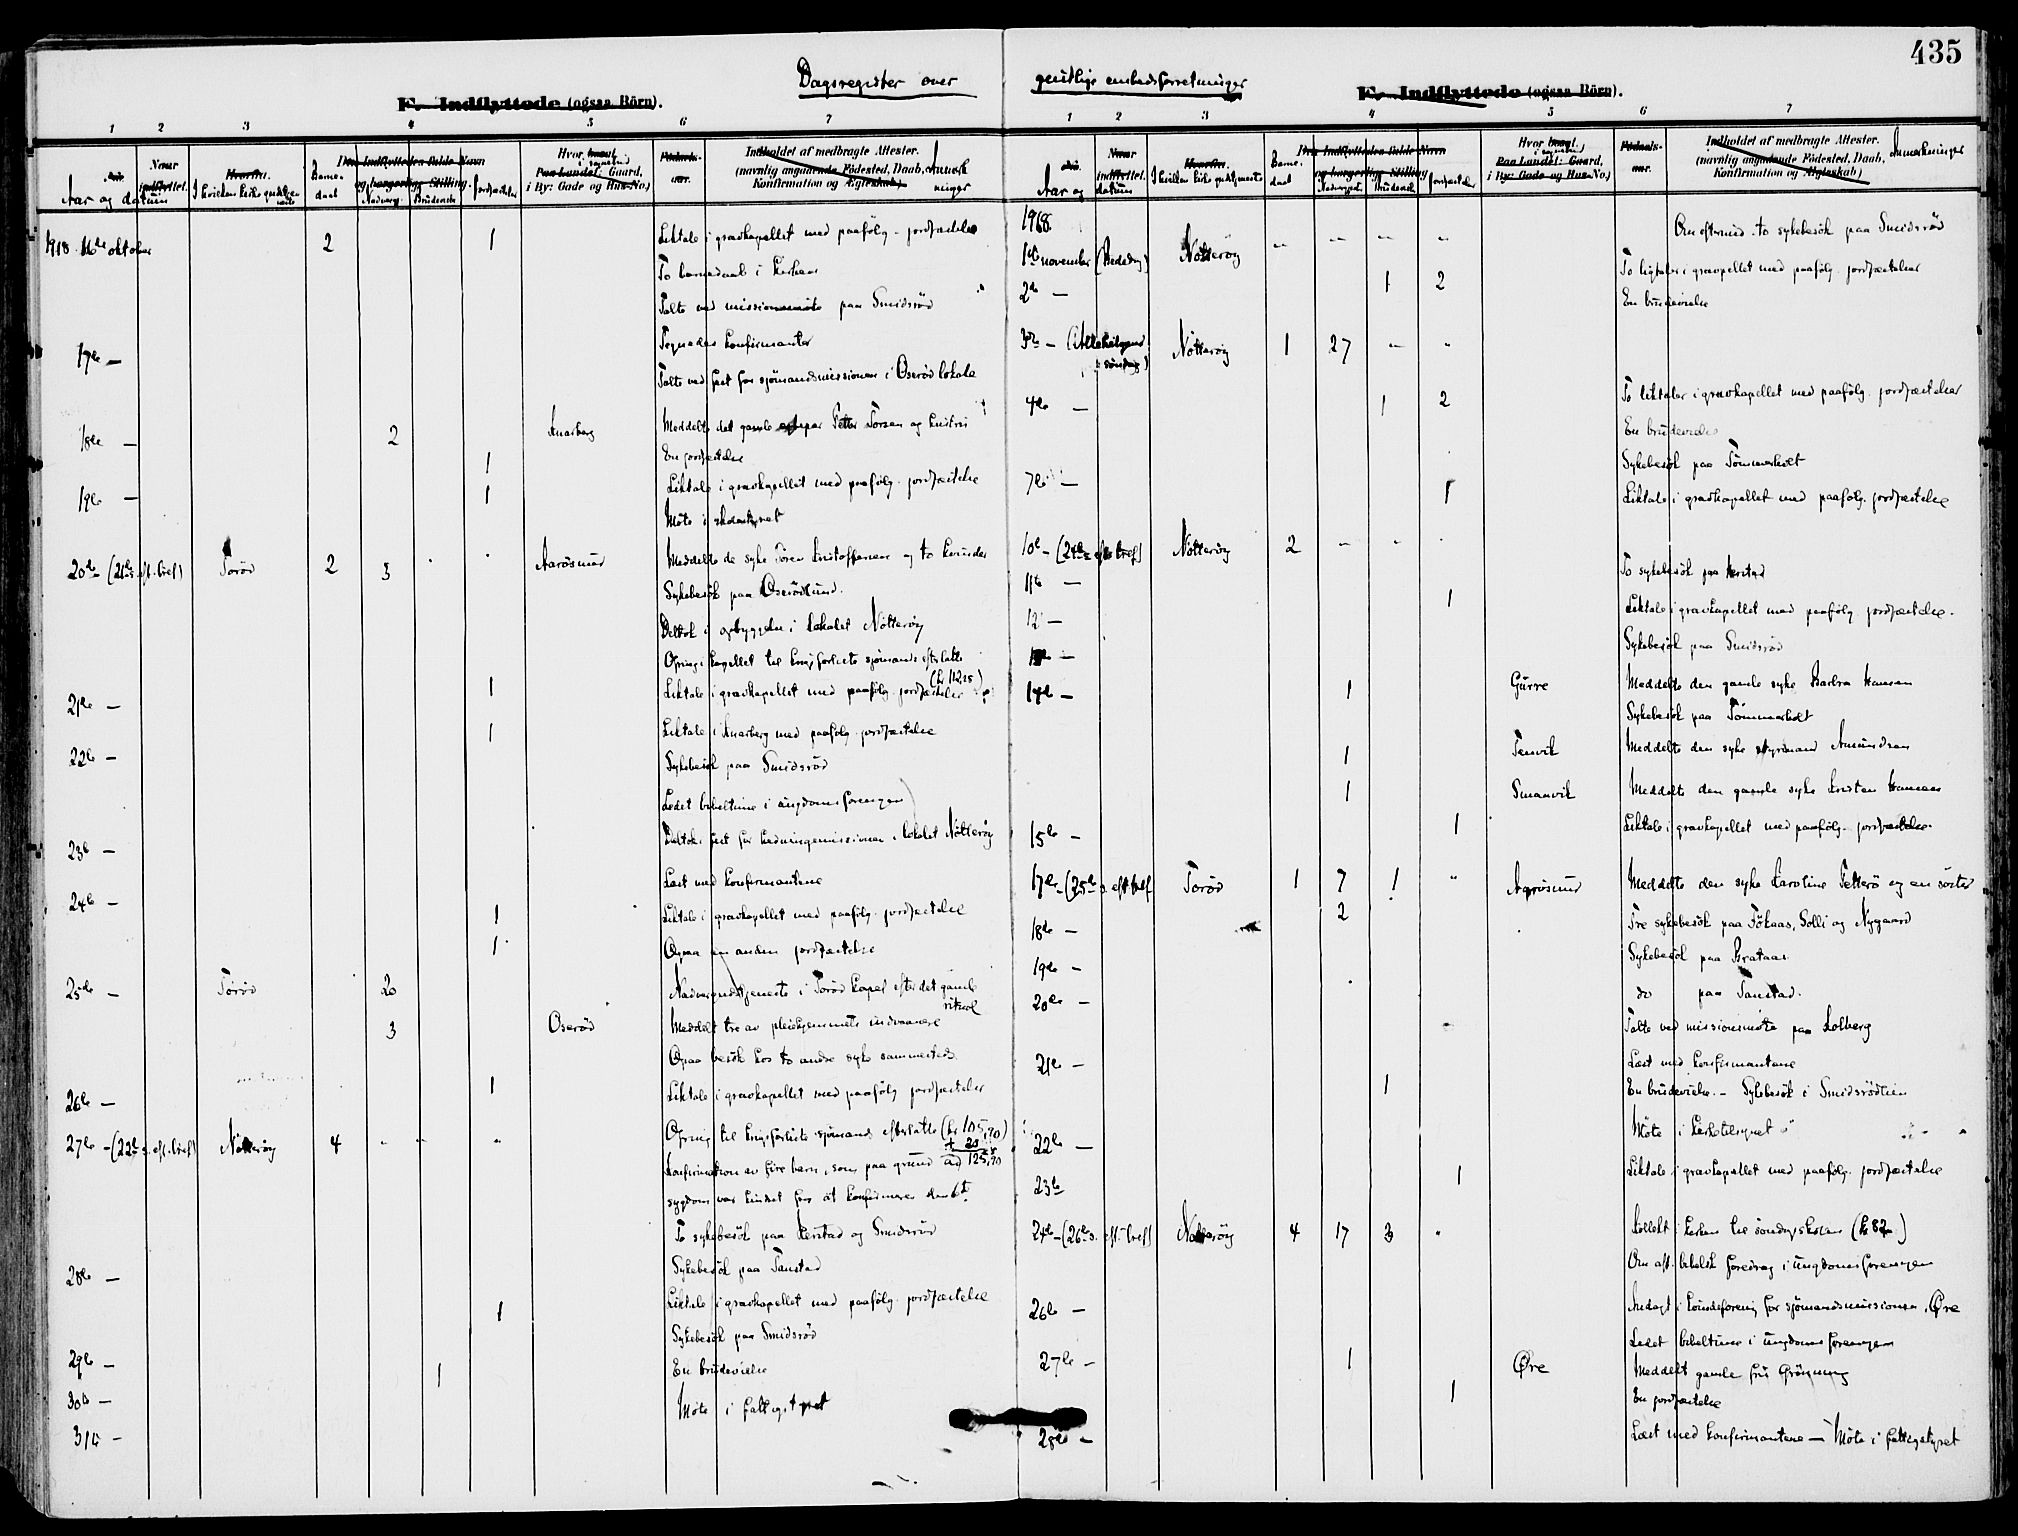 435
Dagsregister over geistlige embedsforretninger
F. Indflyttede (ogsaa Börn).
1 2 3 4 5 6 7
Aar og datum
I hvilken kirke gudstjeneste
Barnedaab
Nadverg.
Brudevielse
Jordfæstelse
Hvor i sognet
Indholdet af medbragte Attester.
(navnlig angaaende Födested, Daab,
Konfirmation og Ægteskab)
Anmerkninger
1918. 16de oktober 2 1 Liktale i gravkapellet med paafölg. jordfæstelse
To barnedaab i kirken
Talte ved missionsmöte paa Smidsröd
17de —
Talte ved fest for sjömandsmissionen i Oseröd lokale
18de — 2 Knarberg Meddelte det gamle egtepar Petter
1 En jordfæstelse
19de — 1 Liktale i gravkapellet med paafölg. jordfæstelse
Möte i
20de (21de s. eft. tref) Toröd 2 3 Aarösund Meddelte de syke Sören Kristoffersen og to kvinder
Sykebesök paa Oserödlund.
Deltok i opbyggelse i lokalet Nötteröy
Ofring i kapellet til krigsforliste sjömænds efterlatte
(kr 112,15)
21de — 1 Liktale i gravkapellet med paafölg. jordfæstelse
22de — 1 Liktale i Knarberg med paafölg. jordfæstelse
Sykebesök paa Smidsröd
Ledet bibeltime i ungdomsforeningen
23de — Deltok i fest for hedningemissionen i lokalet Nötteröy
24de — Læst med konfirmantene
1 Liktale i gravkapellet med paafölg. jordfæstelse
1 Ogsaa en anden jordfæstelse
25de — Toröd 20 Nadvergudstjeneste i Toröd kapel efter det gamle ritual
3 Oseröd Meddelt tre av pleiehjemmets indvaanere
Ogsaa besök hos to andre syke sammesteds
26de — 1 Liktale i gravkapellet med paafölg jordfæstelse
27de — (22de s. eft. tref) Nötteröy 4 Ofring til krigsforliste sjömænds efterlatte (kr 105,90)
+ 20
125,90
Konfirmation av fire barn, som paa grund av
sygdom var hindret fra at konfirmeres den 6te
To sykebesök paa Herstad og Smidsröd
28de — Sykebesök paa Tanstad
1 Liktale i gravkapellet med paafölg. jordfæstelse
Sykebesök paa Smidsröd
29de — 1 En brudevielse
30de — Möte i fattigstyret
31te —
F. Indflyttede (ogsaa Börn).
1 2 3 4 5 6 7
Aar og datum
I hvilken kirke gudstjeneste
Barnedaab
Nadvergj.
Brudevielse
Jordfæstelse
Hvor i sognet
Indholdet af medbragte Attester.
(navnlig angaaende Födested, Daab,
Konfirmation og Ægteskab)
Anmerkninger
1918.
1ste november (Bededag) Nötteröy Om eftermid. to sykebesök paa Smidsröd
2de — 1 2 To liktaler i gravkapellet med paafölg. jordfæstelser
En brudevielse
3die — (Allehelgens söndag) Nötteröy 1 27
4de — 1 2 To liktaler i gravkapellet med paafölg. jordfæstelser
En brudevielse
Sykebesök paa Tömmerholt
7de — 1 Liktale i gravkapellet med paafölg. jordfæstelse
10de — (24de s. eft. tref) Nötteröy 2
11te — To sykebesök paa Herstad
12te — 1 Liktale i gravkapellet med paafölg. jordfæstelse.
Sykebesök paa Smidsröd
14de — 1 Gurre Meddelte den gamle syke Barbra Hansen
Sykebesök paa Tömmerholt
1 Tenvik Meddelte den syke styrmand Amundsen
1 Smaavik Meddelte den gamle syke Kristen Hansen
15de — 1 Liktale i gravkapellet med paafölg. jordfæstelse.
17de — (25de s. eft. tref) Toröd 1 7 1 Aarösund Meddelte den syke Karoline Petterö og en söster
18de — 2 Tre sykebesök paa Fökaas, Solli og Nygaard
19de — Sykebesök paa Brataas
20de — do paa Tanstad.
Talte ved missionsmöte paa Kolberg
21de — Læst med konfirmantene
1 En brudevielse. — Sykebesök i Smidsrödlien
22de — Möte i kirketilsynet
23de 1 Liktale i gravkapellet med paafölg. jordfæstelse
24de — (26de s. eft. tref) Nötteröy 4 17 3 Kollekt i kirken til söndagsskolen (kr 82)
Om aft. bibelsk foredrag i ungdomsforeningen
26de — Andagt i kvindeforening for sjömandsmissionen, Øre
Ledet bibeltime i ungdomsforeningen
27de — 1 Øre Meddelt gamle fru Grönning
1 En jordfæstelse
28de — Læst med konfirmantene — Möte i fattigstyret